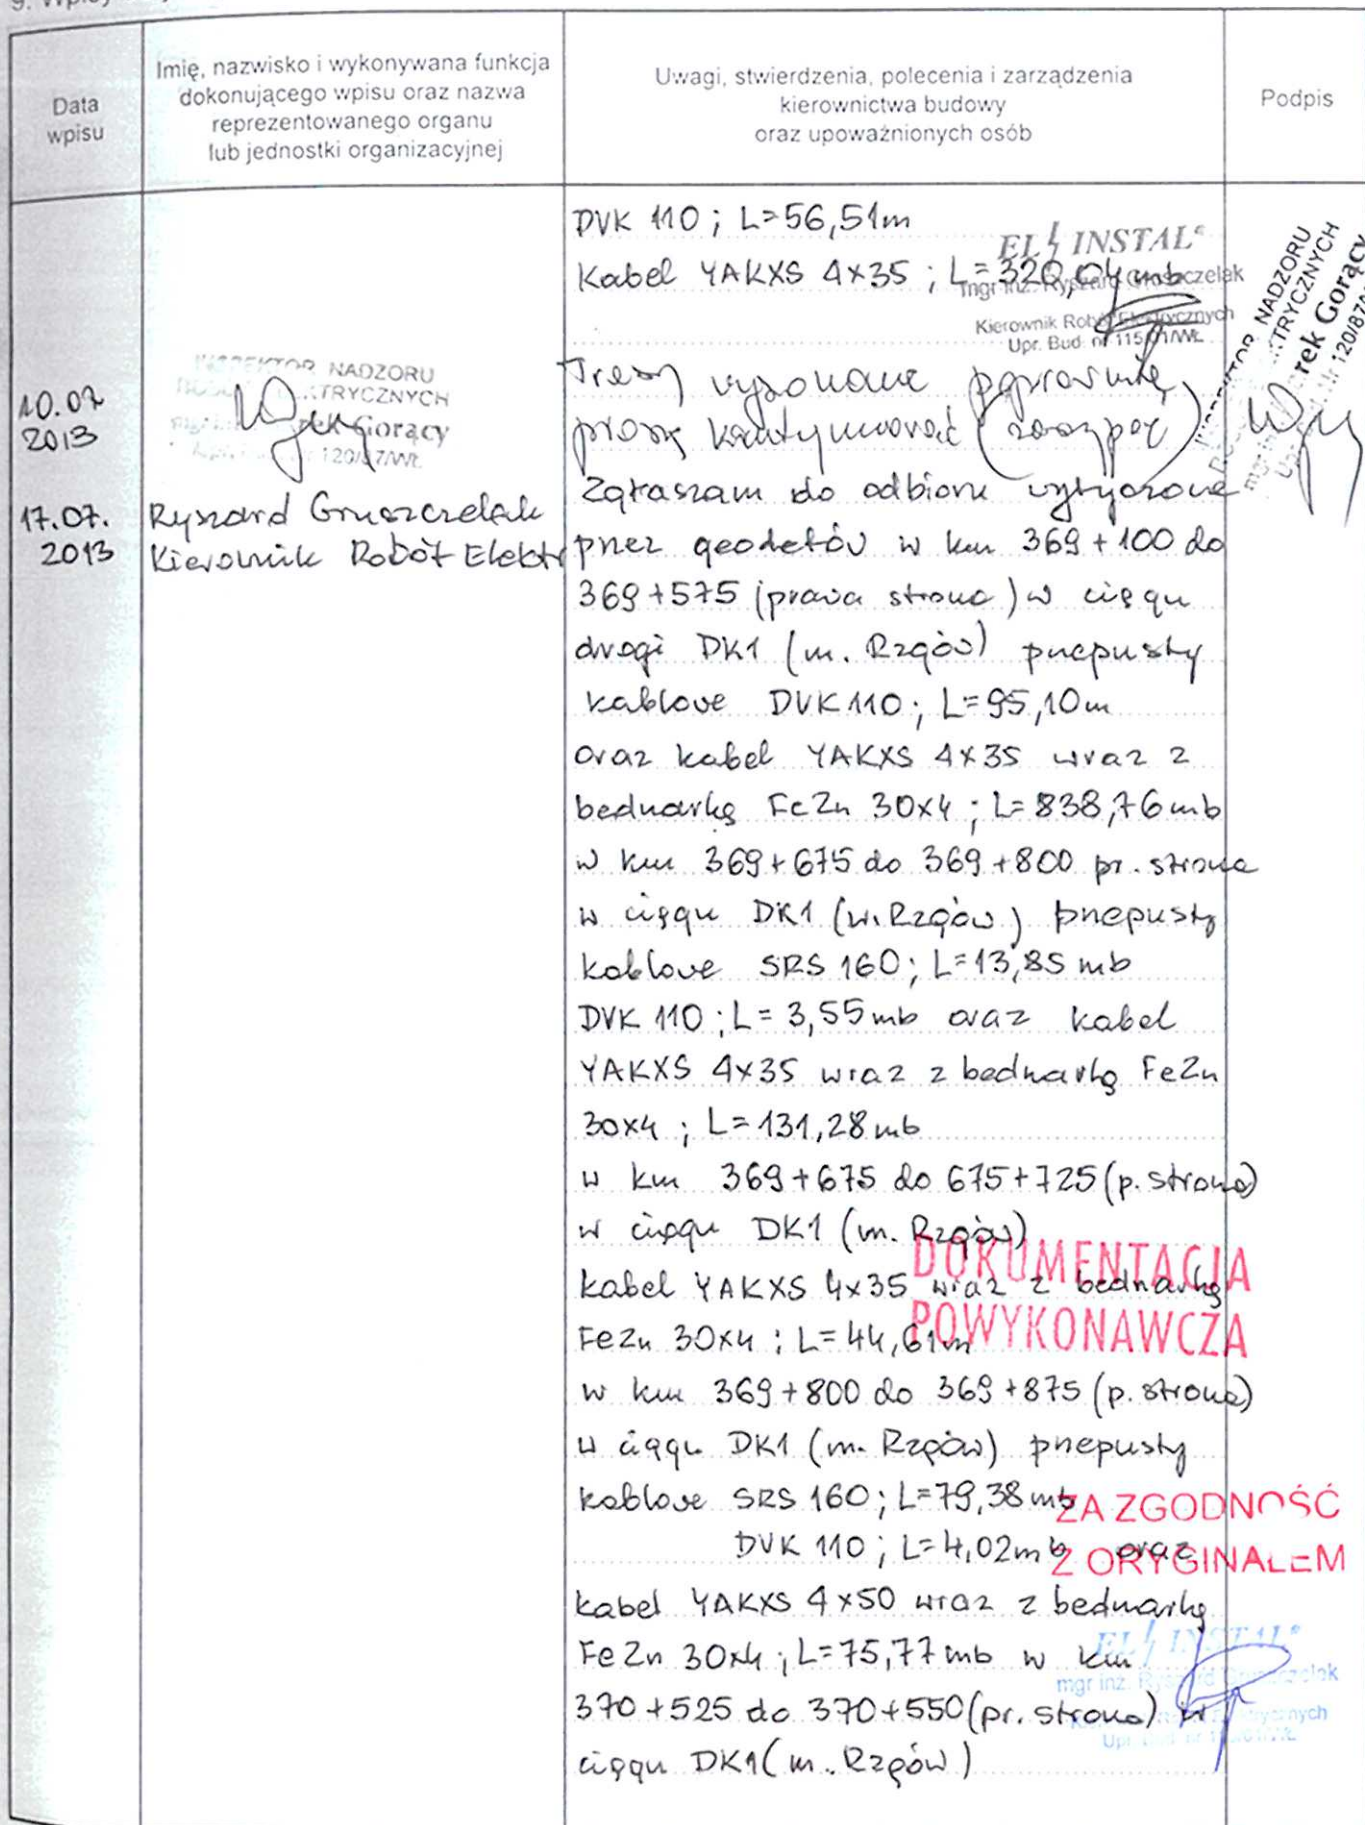 Data
wpisu
Imię, nazwisko i wykonywana funkcja
dokonującego wpisu oraz nazwa
reprezentowanego organu
lub jednostki organizacyjnej
Uwagi, stwierdzenia, polecenia i zarządzenia
kierownictwa budowy
oraz upoważnionych osób
Podpis
DVK 110 ; L=56,51m
EL INSTAL
Kabel YAKXS 4x35 ; L=320,04 mb
mgr inż. Ryszard Gruszczelak
Kierownik Robót Elektrycznych
Upr. Bud. nr 115/01/WŁ
10.07
2013
INSPEKTOR NADZORU
ELEKTRYCZNYCH
Marek Gorący
120/87/WŁ
wykonane poprawnie,
proszę kontynuować
INSPEKTOR NADZORU
ELEKTRYCZNYCH
Marek Gorący
17.07.
2013
Ryszard Gruszczelak
Kierownik Robót Elektr
Zgłaszam do odbioru wytyczone
przez geodetów w km 369+100 do
369+575 (prawa strona) w ciągu
drogi DK1 (m. Rzgów) przepusty
kablowe DVK 110; L=95,10m
oraz kabel YAKXS 4x35 wraz z
bednarką FeZn 30x4 ; L=838,76mb
w km 369+675 do 369+800 pr. strona
w ciągu DK1 (m. Rzgów) przepusty
kablowe SRS 160; L=13,85 mb
DVK 110 ; L= 3,55mb oraz kabel
YAKXS 4x35 wraz z bednarką FeZn
30x4 ; L=131,28mb
w km 369+675 do 675+725 (p. strona)
w ciągu DK1 (m. Rzgów)
DOKUMENTACJA
kabel YAKXS 4x35 wraz z bednarką
POWYKONAWCZA
FeZn 30x4 ; L=44,61m
w km 369+800 do 369+875 (p. strona)
w ciągu DK1 (m. Rzgów) przepusty
kablowe SRS 160; L=79,38 mb
ZA ZGODNOŚĆ
DVK 110 ; L=4,02mb oraz
Z ORYGINAŁEM
kabel YAKXS 4x50 wraz z bednarką
FeZn 30x4 ; L=75,77mb w km
EL INSTAL
mgr inż. Ryszard Gruszczelak
370+525 do 370+550 (pr. strona) w
ciągu DK1 (m. Rzgów)